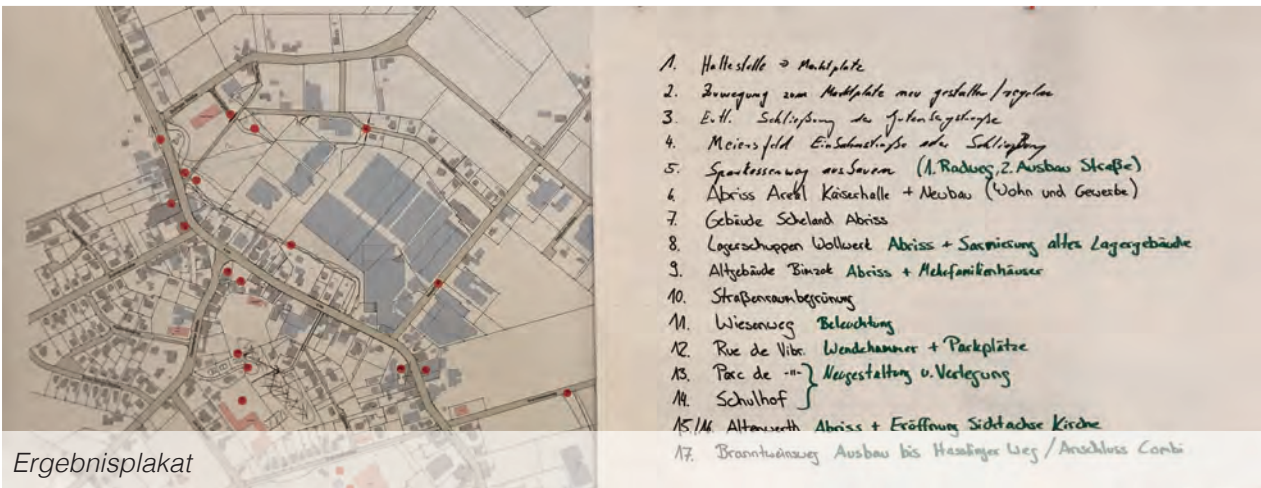 1. Haltestelle → Marktplatz
2. Zuwegung zum Marktplatz neu gestalten/regeln
3. Evtl. Schließung der Gutenbergstraße
4. Meiersfeld Einbahnstraße oder Schließung
5. Sparkassenweg ausbauen (1. Radweg, 2. Ausbau Straße)
6. Abriss Areal Kaiserhalle + Neubau (Wohn und Gewerbe)
7. Gebäude Scheland Abriss
8. Lagerschuppen Wollwert Abriss + Sarnierung altes Lagergebäude
9. Altgebäude Binzok Abriss + Mehrfamilienhäuser
10. Straßenraumbegrünung
11. Wiesenweg Beleuchtung
12. Rue de Vibr. Wendehammer + Parkplätze
13. Parc de -"- } Neugestaltung u. Verlegung
14. Schulhof
15/16. Altenwerth Abriss + Eröffnung Sichtachse Kirche
17. Branntweinsweg Ausbau bis Hasslinger Weg / Anschluss Combi
Ergebnisplakat